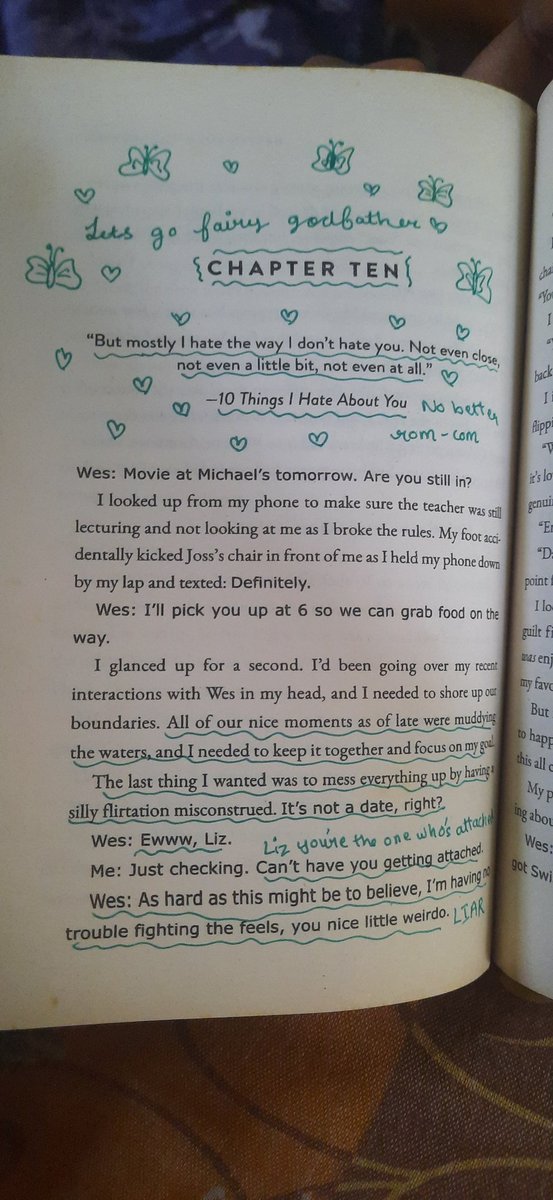 Lets go fairy godfather
{CHAPTER TEN}
"But mostly I hate the way I don't hate you. Not even close,
not even a little bit, not even at all."
—10 Things I Hate About You
No better
rom-com
Wes: Movie at Michael's tomorrow. Are you still in?
I looked up from my phone to make sure the teacher was still
lecturing and not looking at me as I broke the rules. My foot acci-
dentally kicked Joss's chair in front of me as I held my phone down
by my lap and texted: Definitely.
Wes: I'll pick you up at 6 so we can grab food on the
way.
I glanced up for a second. I'd been going over my recent
interactions with Wes in my head, and I needed to shore up our
boundaries. All of our nice moments as of late were muddying
the waters, and I needed to keep it together and focus on my goal.
The last thing I wanted was to mess everything up by having a
silly flirtation misconstrued. It's not a date, right?
Wes: Ewww, Liz.
Liz you're the one who's attached
Me: Just checking. Can't have you getting attached.
Wes: As hard as this might be to believe, I'm having no
trouble fighting the feels, you nice little weirdo.
LIAR
"Yo
I
back
I
flippi
"W
it's lo
genui
"Er
point f
I lo
guilt fi
was enj
my favo
But
to happ
this all c
My p
ing abou
Wes:
got Swi